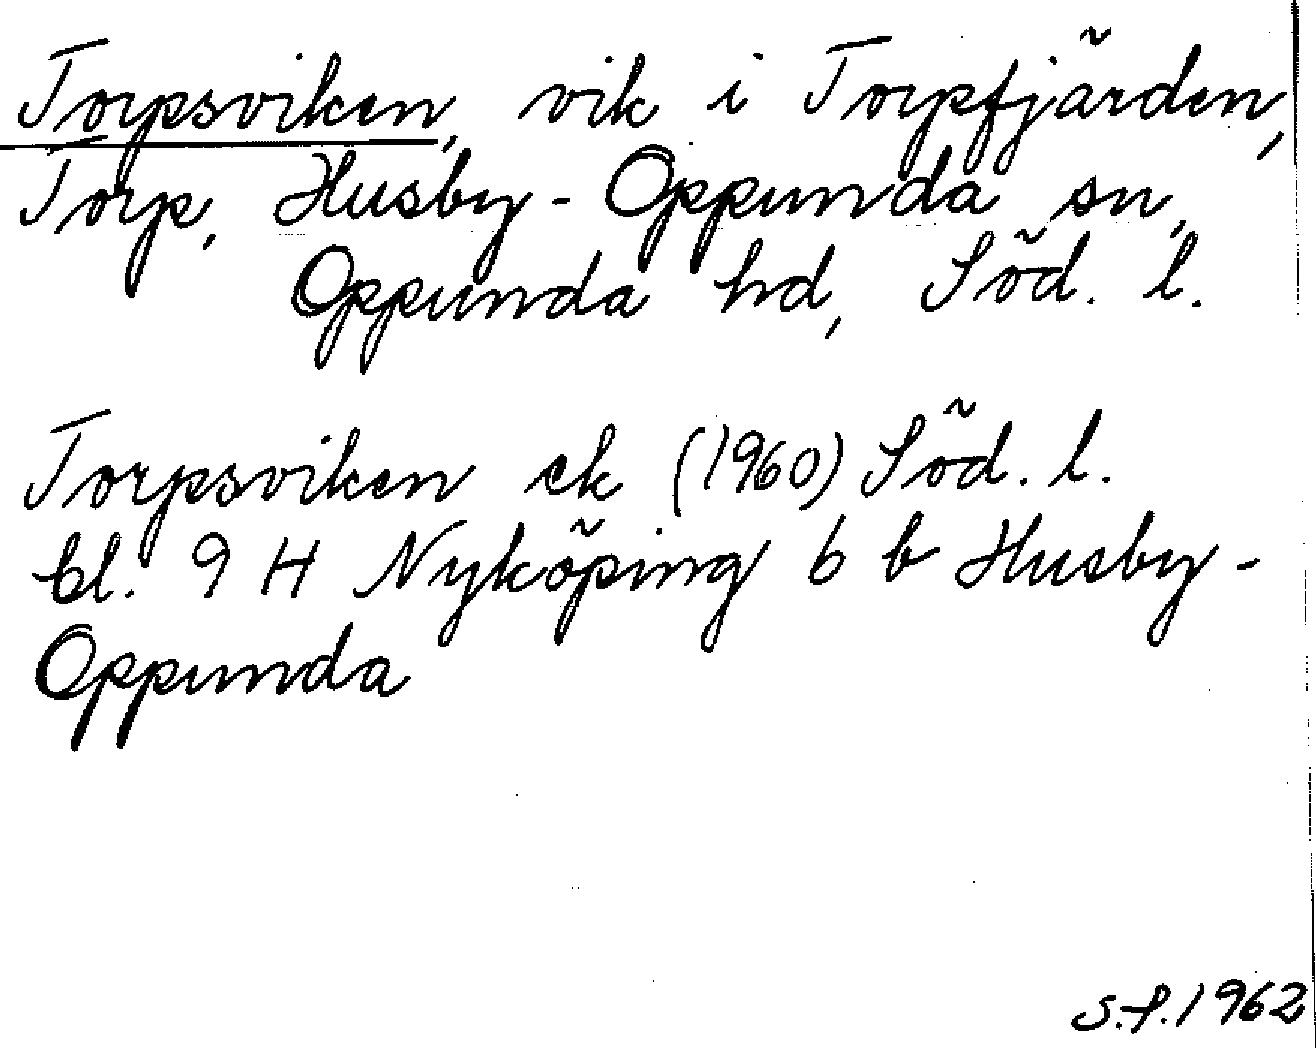 Torpsviken, vik i Torpfjärden,
Torp, Husby-Oppunda sn,
Oppunda hd, Söd. l.
Torpsviken ek (1960) Söd. l.
bl. 9 H Nyköping 6 b Husby-
Oppunda
S.f. 1962